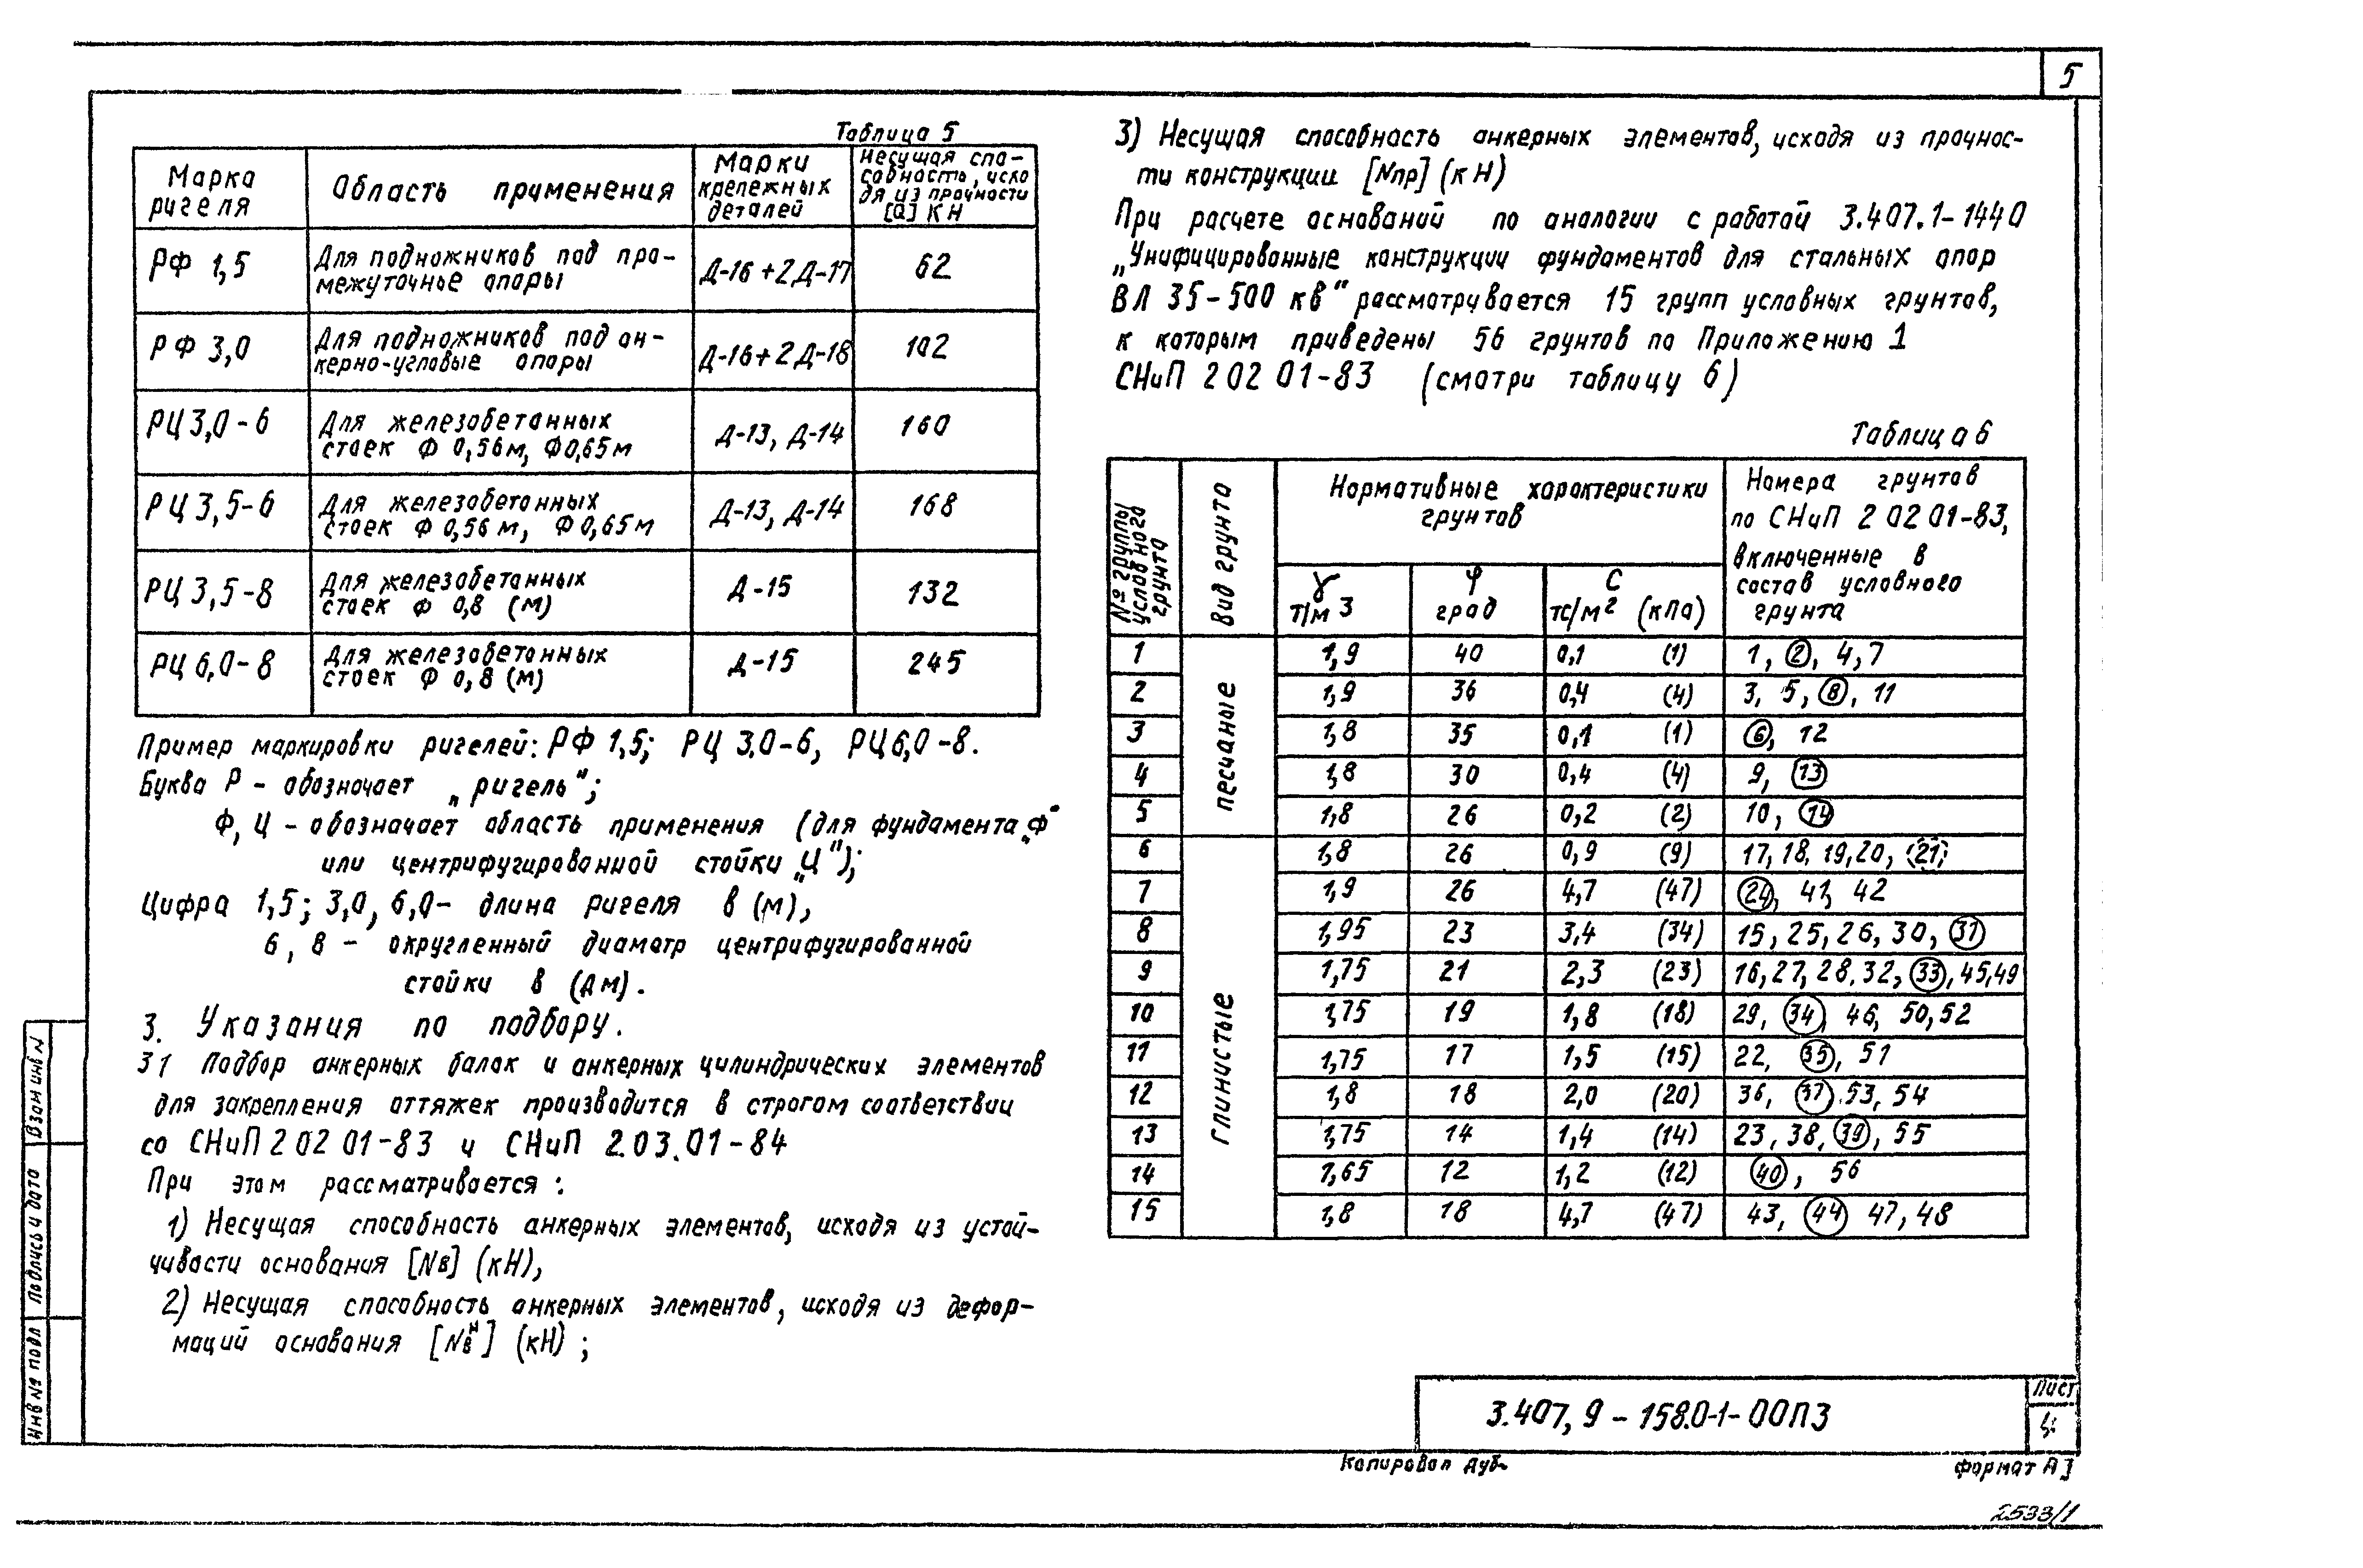 5
Таблица 5
Марка ригеля | Область применения | Марки крепежных деталей | Несущая способность, исходя из прочности [Q] КН
РФ 1,5 | Для подножников под промежуточные опоры | Д-16+2Д-17 | 62
РФ 3,0 | Для подножников под анкерно-угловые опоры | Д-16+2Д-18 | 102
РЦ 3,0-6 | Для железобетонных стоек Ф 0,56м, Ф0,65м | Д-13, Д-14 | 160
РЦ 3,5-6 | Для железобетонных стоек Ф 0,56 м, Ф 0,65м | Д-13, Д-14 | 168
РЦ 3,5-8 | Для железобетонных стоек Ф 0,8 (м) | Д-15 | 132
РЦ 6,0-8 | Для железобетонных стоек Ф 0,8 (м) | Д-15 | 245
Пример маркировки ригелей: РФ 1,5; РЦ 3.0-6, РЦ6,0-8.
Буква Р - обозначает „ригель";
Ф, Ц - обозначает область применения (для фундамента „Ф"
или центрифугированной стойки „Ц");
Цифра 1,5; 3,0, 6,0- длина ригеля в (м),
6, 8 - округленный диаметр центрифугированной
стойки в (дм).
3. Указания по подбору.
31 Подбор анкерных балок и анкерных цилиндрических элементов
для закрепления оттяжек производится в строгом соответствии
со СНиП 2 02 01-83 и СНиП 2.03.01-84
При этом рассматривается:
1) Несущая способность анкерных элементов, исходя из устой-
чивости основания [Nв] (кН),
2) Несущая способность анкерных элементов, исходя из дефор-
маций основания [Nвᴴ] (кН);
3) Несущая способность анкерных элементов, исходя из прочнос-
ти конструкции [Nпр] (кН)
При расчете оснований по аналогии с работой 3.407.1-1440
„Унифицированные конструкции фундаментов для стальных опор
ВЛ 35-500 кв" рассматрувается 15 групп условных грунтов,
к которым приведены 56 грунтов по Приложению 1
СНиП 2 02 01-83 (смотри таблицу 6)
Таблица 6
№ группы условного грунта | Вид грунта | Нормативные характеристики грунтов | Номера грунтов по СНиП 2 02 01-83, включенные в состав условного грунта
γ т/м 3 | φ град | С тс/м² (кПа)
песчаные
1 | 1,9 | 40 | 0,1 (1) | 1, 2, 4,7
2 | 1,9 | 36 | 0,4 (4) | 3, 5, 8, 11
3 | 1,8 | 35 | 0,1 (1) | 6, 12
4 | 1,8 | 30 | 0,4 (4) | 9, 13
5 | 1,8 | 26 | 0,2 (2) | 10, 14
глинистые
6 | 1,8 | 26 | 0,9 (9) | 17, 18, 19,20, 21
7 | 1,9 | 26 | 4,7 (47) | 24, 41, 42
8 | 1,95 | 23 | 3,4 (34) | 15, 25, 26, 30, 31
9 | 1,75 | 21 | 2,3 (23) | 16,27, 28, 32, 33, 45,49
10 | 1,75 | 19 | 1,8 (18) | 29, 34, 46, 50,52
11 | 1,75 | 17 | 1,5 (15) | 22, 35, 51
12 | 1,8 | 18 | 2,0 (20) | 36, 37, 53, 54
13 | 1,75 | 14 | 1,4 (14) | 23, 38, 39, 55
14 | 1,65 | 12 | 1,2 (12) | 40, 56
15 | 1,8 | 18 | 4,7 (47) | 43, 44 47, 48
Взам инв N
Подпись и дата
Инв № подл
3.407,9-158.0-1-00ПЗ
Лист
4
Копировал Дуб-
Формат А3
2533/1